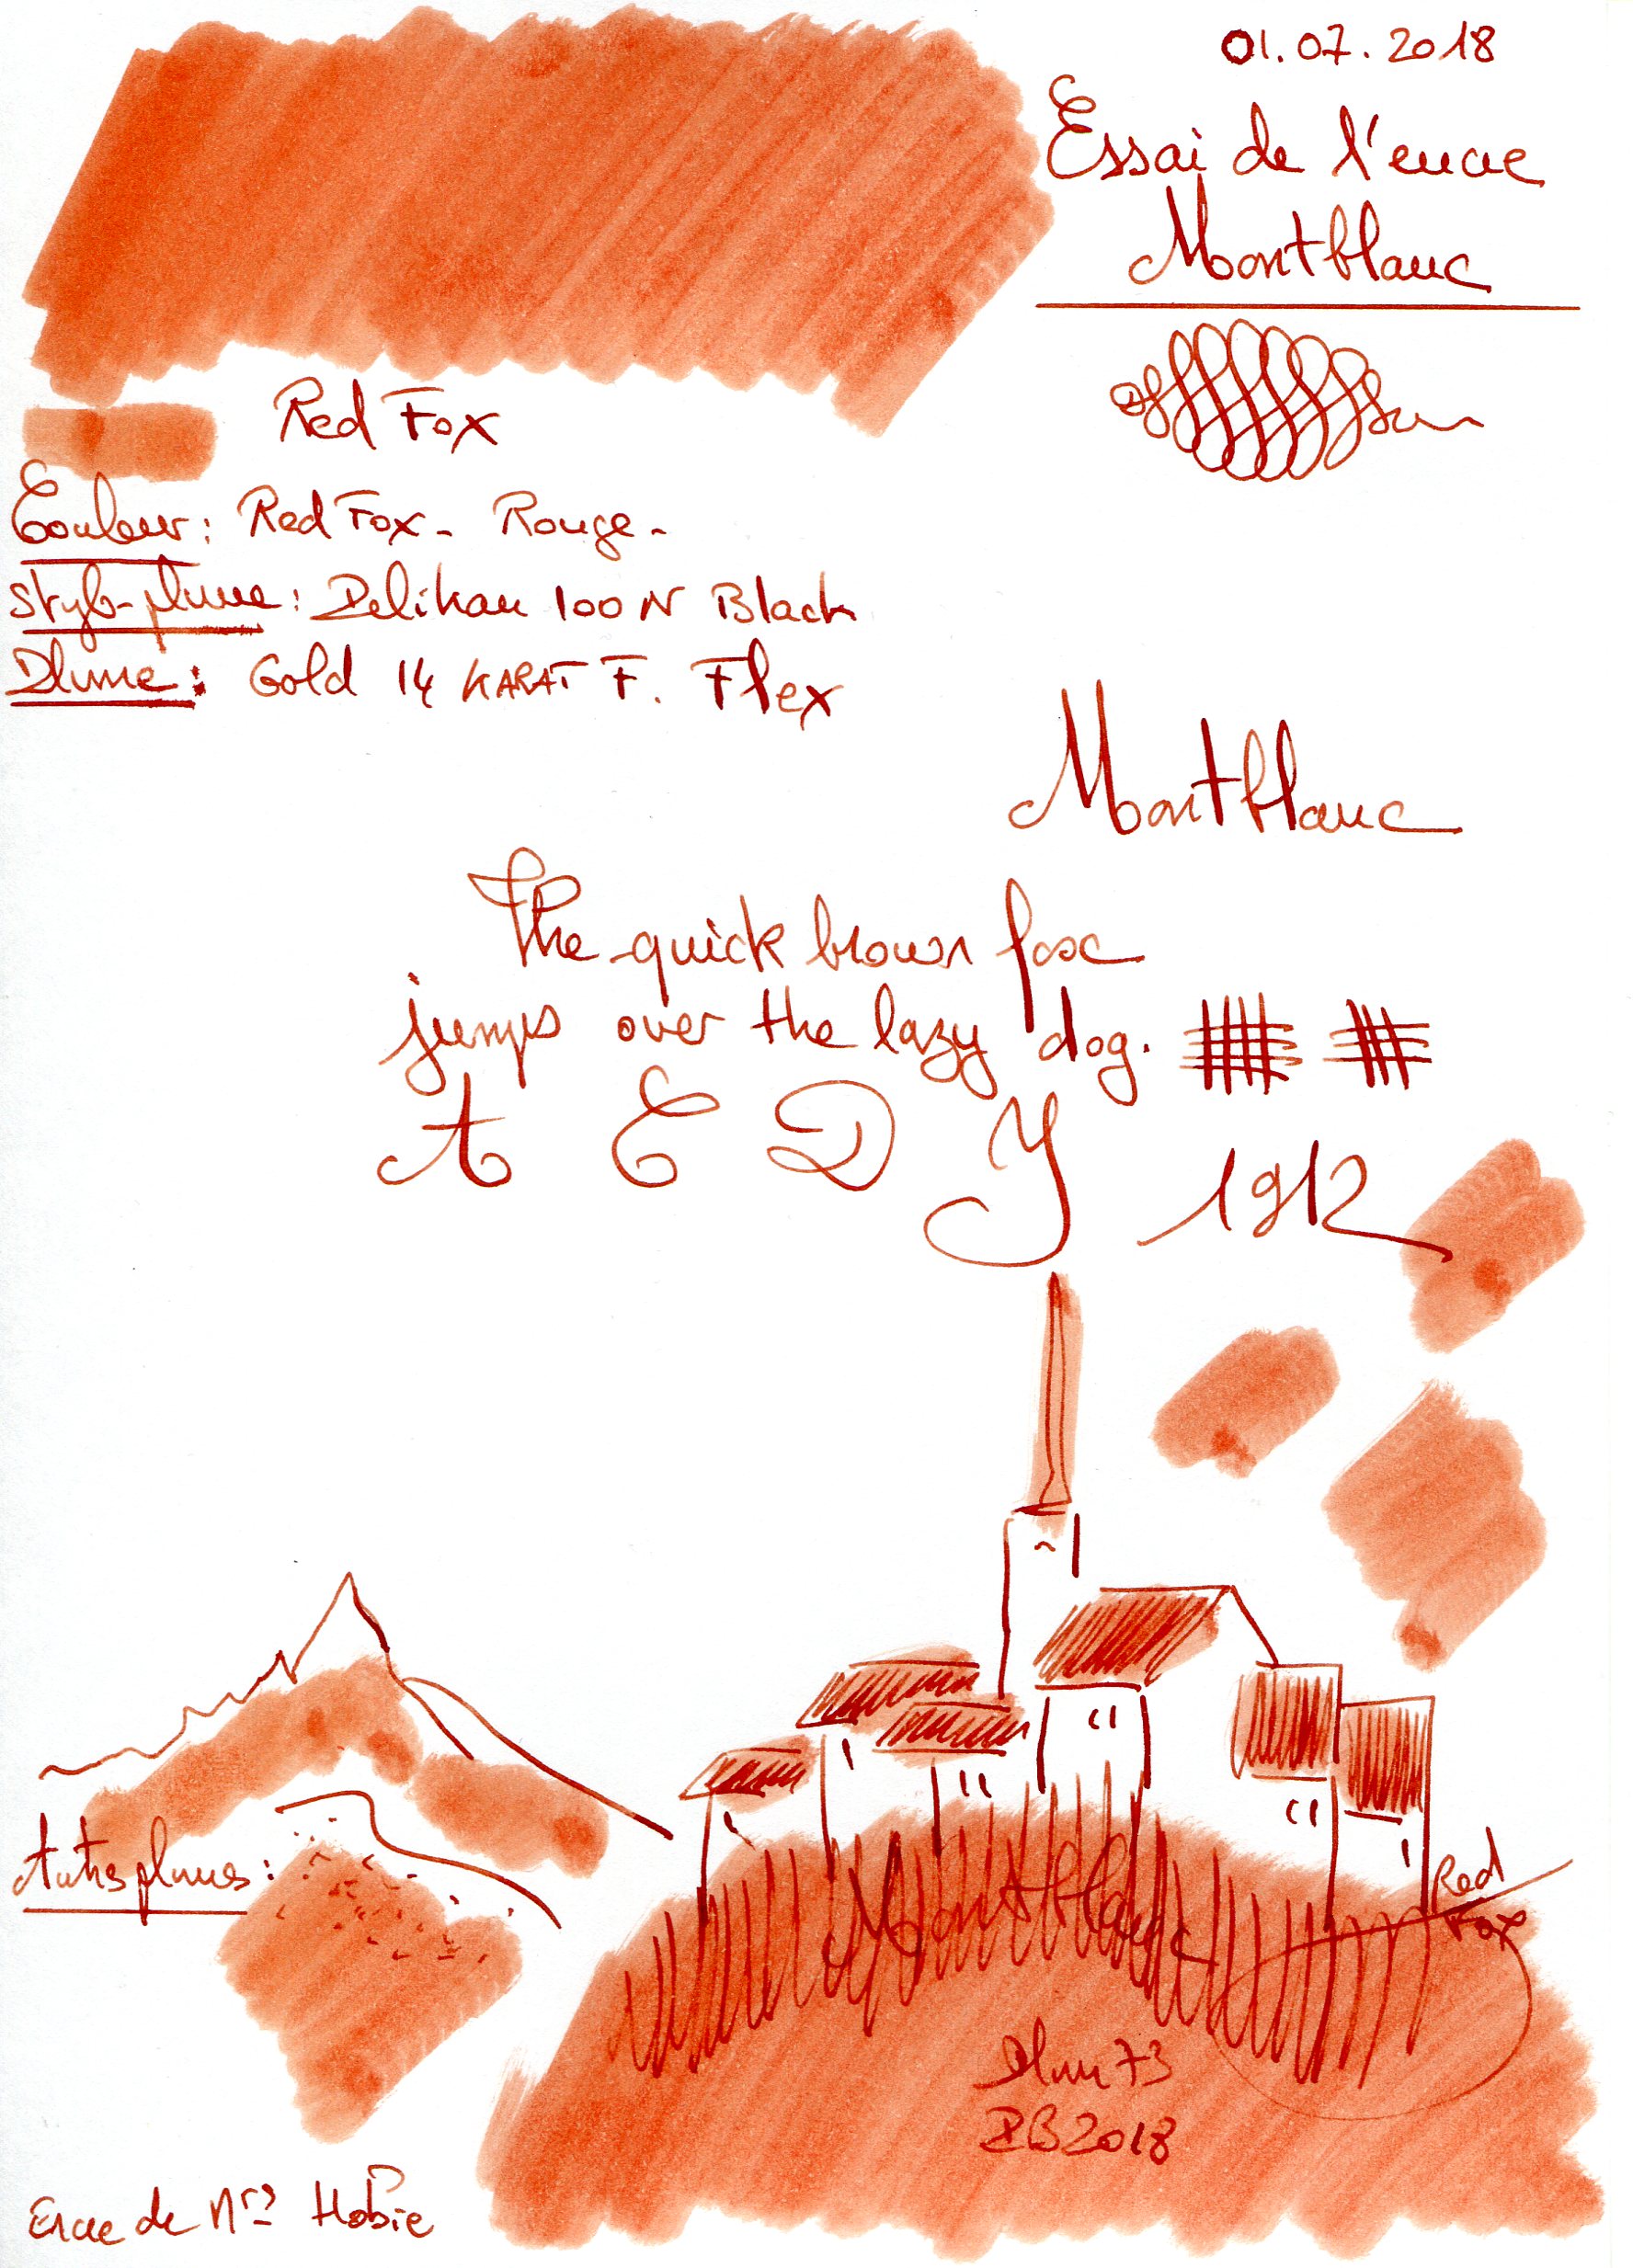 01.07.2018
Essai de l'encre
Montblanc
Red Fox
Couleur: Red Fox - Rouge -
Stylo-plume: Pelikan 100 N Black
Plume: Gold 14 KARAT F. Flex
Montblanc
The quick brown fox
jumps over the lazy dog.
A E D Y 1912
Autres plumes:
Red
Fox
Montblanc
Plum73
PB2018
Encre de Mrs Hobie